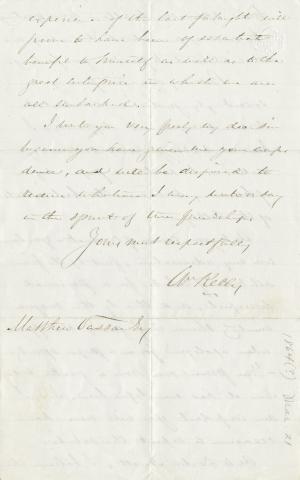 experience of the last fortnight will
prove to have been of essential
benefit to himself as well as to the
great enterprise in which we are
all embarked.
I write you very freely my dear Sir
because you have given me your confi-
dence, and will be disposed to
receive whatever I may write or say
in the spirit of true friendship.
Yours most respectfully
Wm Kelly
Matthew Vassar Esq
1864(?) Mar 21